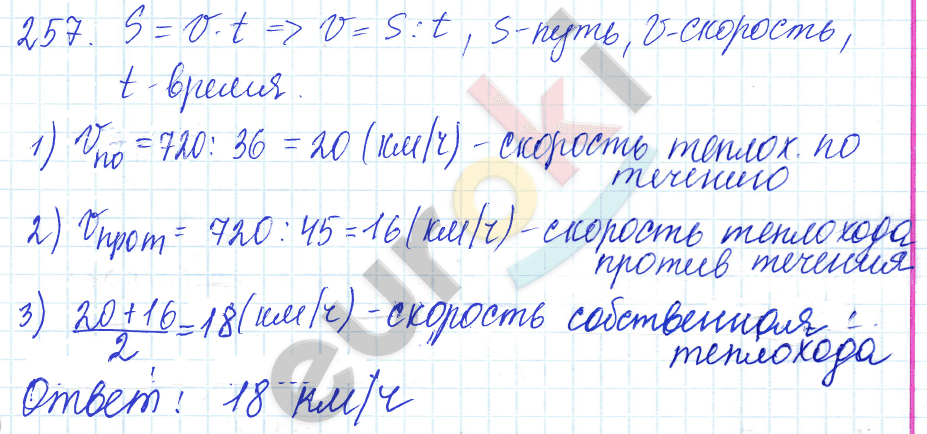 257. S = v · t => v = S : t, S - путь, v - скорость,
t - время.
1) vпо = 720 : 36 = 20 (км/ч) - скорость теплох. по
течению
2) vпрот = 720 : 45 = 16 (км/ч) - скорость теплохода
против течения
3) (20 + 16)/2 = 18 (км/ч) - скорость собственная
теплохода
Ответ: 18 км/ч
euroki